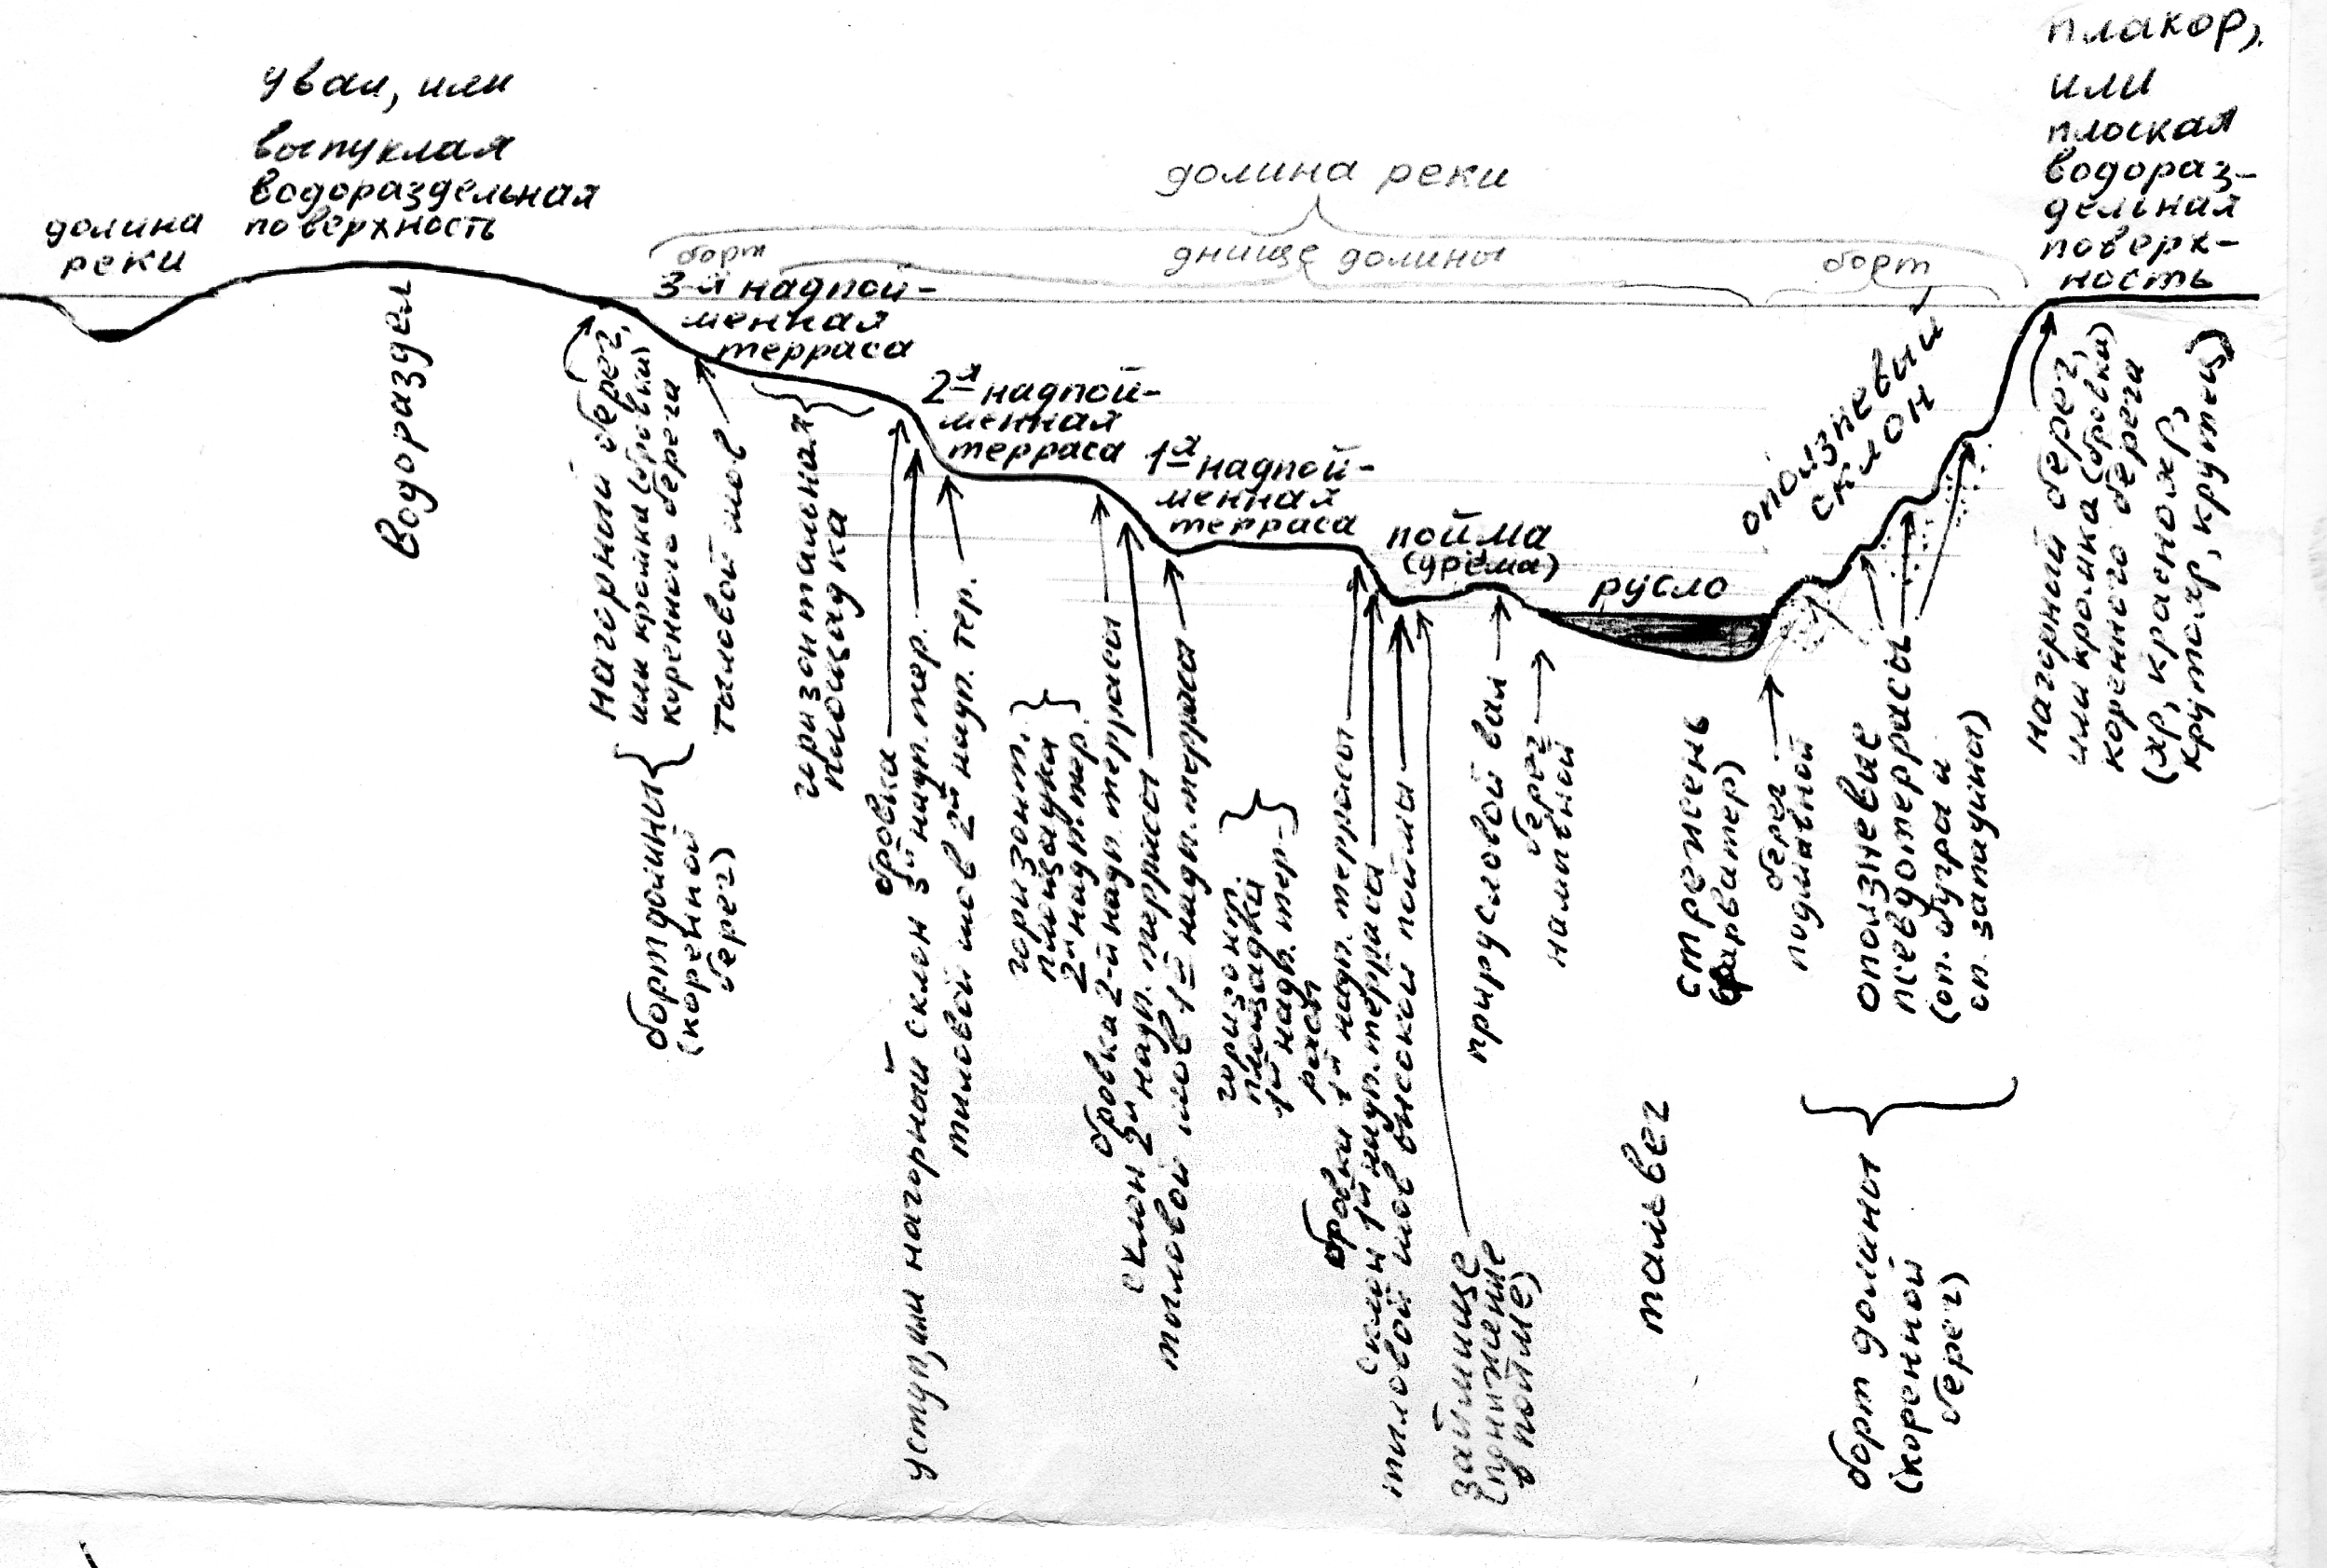 долина
реки
увал, или
выпуклая
водораздельная
поверхность
долина реки
борт
днище долины
борт
плакор,
или
плоская
водораз-
дельная
поверх-
ность
3-й надпой-
менная
терраса
2я надпой-
менная
терраса
1я надпой-
менная
терраса
пойма
(урёма)
русло
оползневый
склон
Водораздел
нагорный берег,
или кромка (бровки)
коренного берега
тыловой шов
борт долины
(коренной
берег)
горизонтальная
площадка
бровка
уступ, или нагорный склон 3й надп. тер.
тыловой шов 2й надп. тер.
горизонт.
площадка
2й надп. тер.
бровка 2-й надп. террасы
склон 2й надп. террасы
тыловой шов 1й надп. терраса
горизонт.
площадка
1й надп. тер-
расы
бровки 1й надп. террасы
склон 1й надп. терраса
тыловой шов высокой поймы
займище
(понижение
в пойме)
прирусловой вал
берег
намывной
стрежень
(фарватер)
тальвег
берег
подмывной
оползневые
псевдотеррасы
(оп. бугры и
оп. западины)
борт долины
(коренной
берег)
нагорный берег,
или кромка (бровка)
коренного берега
(яр, красный яр,
крутояр, крутец)